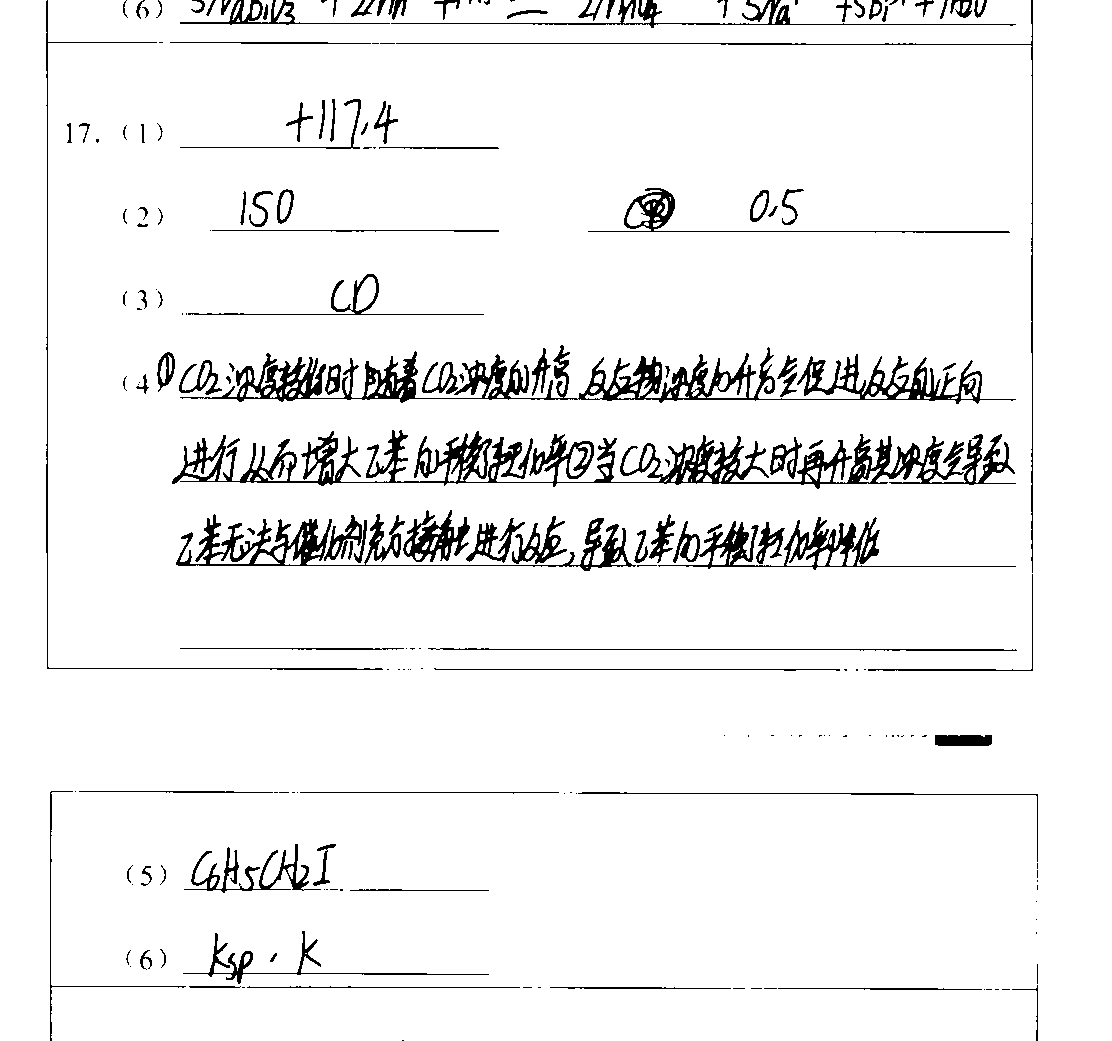 (6) 5NaBiO₃ + 2Mn + = 2MnO₄ + 5Na⁺ + 5Bi³⁺ + 7H₂O
17. (1) +117.4
(2) 150 0.5
(3) CD
(4 ① CO₂浓度较低时随着CO₂浓度的升高 反应物浓度的升高会促进反应的正向
进行从而增大乙苯的平衡转化率②当CO₂浓度较大时再升高其浓度会导致
乙苯无法与催化剂充分接触进行反应,导致乙苯的平衡转化率降低
(5) C₆H₅CH₂I
(6) Ksp · K